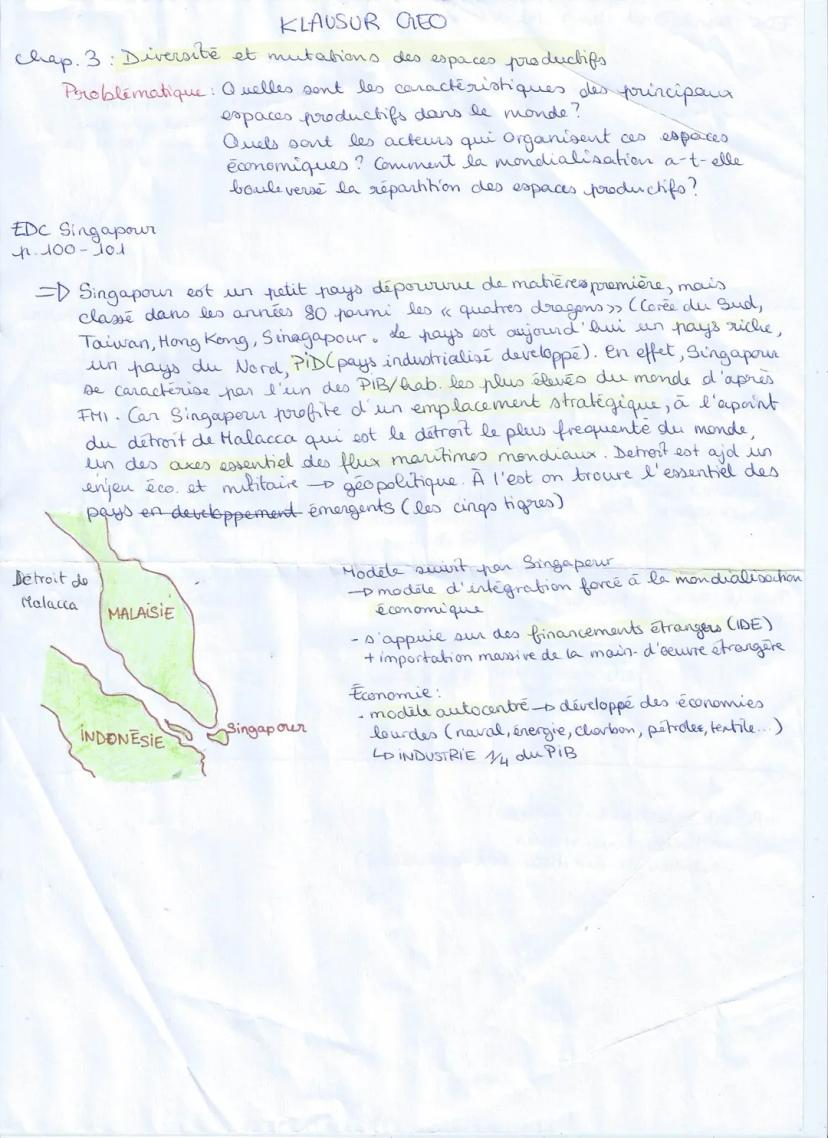 KLAUSUR GEO
Chap. 3 : Diversité et mutations des espaces productifs
Problématique : Quelles sont les caractéristiques des principaux
espaces productifs dans le monde ?
Quels sont les acteurs qui organisent ces espaces
économiques ? Comment la mondialisation a-t-elle
bouleversé la répartition des espaces productifs ?
EDC Singapour
p. 100-101
=> Singapour est un petit pays dépourvue de matières première, mais
classé dans les années 80 parmi les « quatres dragons » (Corée du Sud,
Taiwan, Hong Kong, Sinagapour. Le pays est aujourd'hui un pays riche,
un pays du Nord, PiD (pays industrialisé developpé). En effet, Singapour
se caractérise par l'un des PIB/hab. les plus élevés du monde d'après
FMI. Car Singapour profite d'un emplacement stratégique, à l'apoint
du détroit de Malacca qui est le détroit le plus frequenté du monde,
un des axes essentiel des flux maritimes mondiaux. Detroit est ajd un
enjeu éco. et militaire -> géopolitique. À l'est on trouve l'essentiel des
pays en developpement émergents (les cinqs tigres)
Détroit de
Malacca
MALAISIE
INDONÉSIE
Singapour
Modèle suivit par Singapour
-> modèle d'intégration forcé à la mondialisation
économique
- s'appuie sur des financements étrangers (IDE)
+ importation massive de la main-d'oeuvre étrangère
Économie :
- modèle autocentré -> développé des économies
lourdes (naval, énergie, charbon, pétroles, textile...)
↳ INDUSTRIE 1/4 du PIB